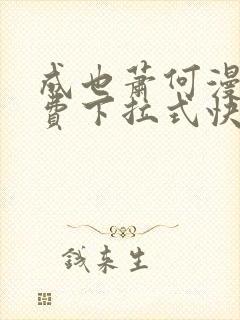 成也萧何漫
费下拉式快
钱来生